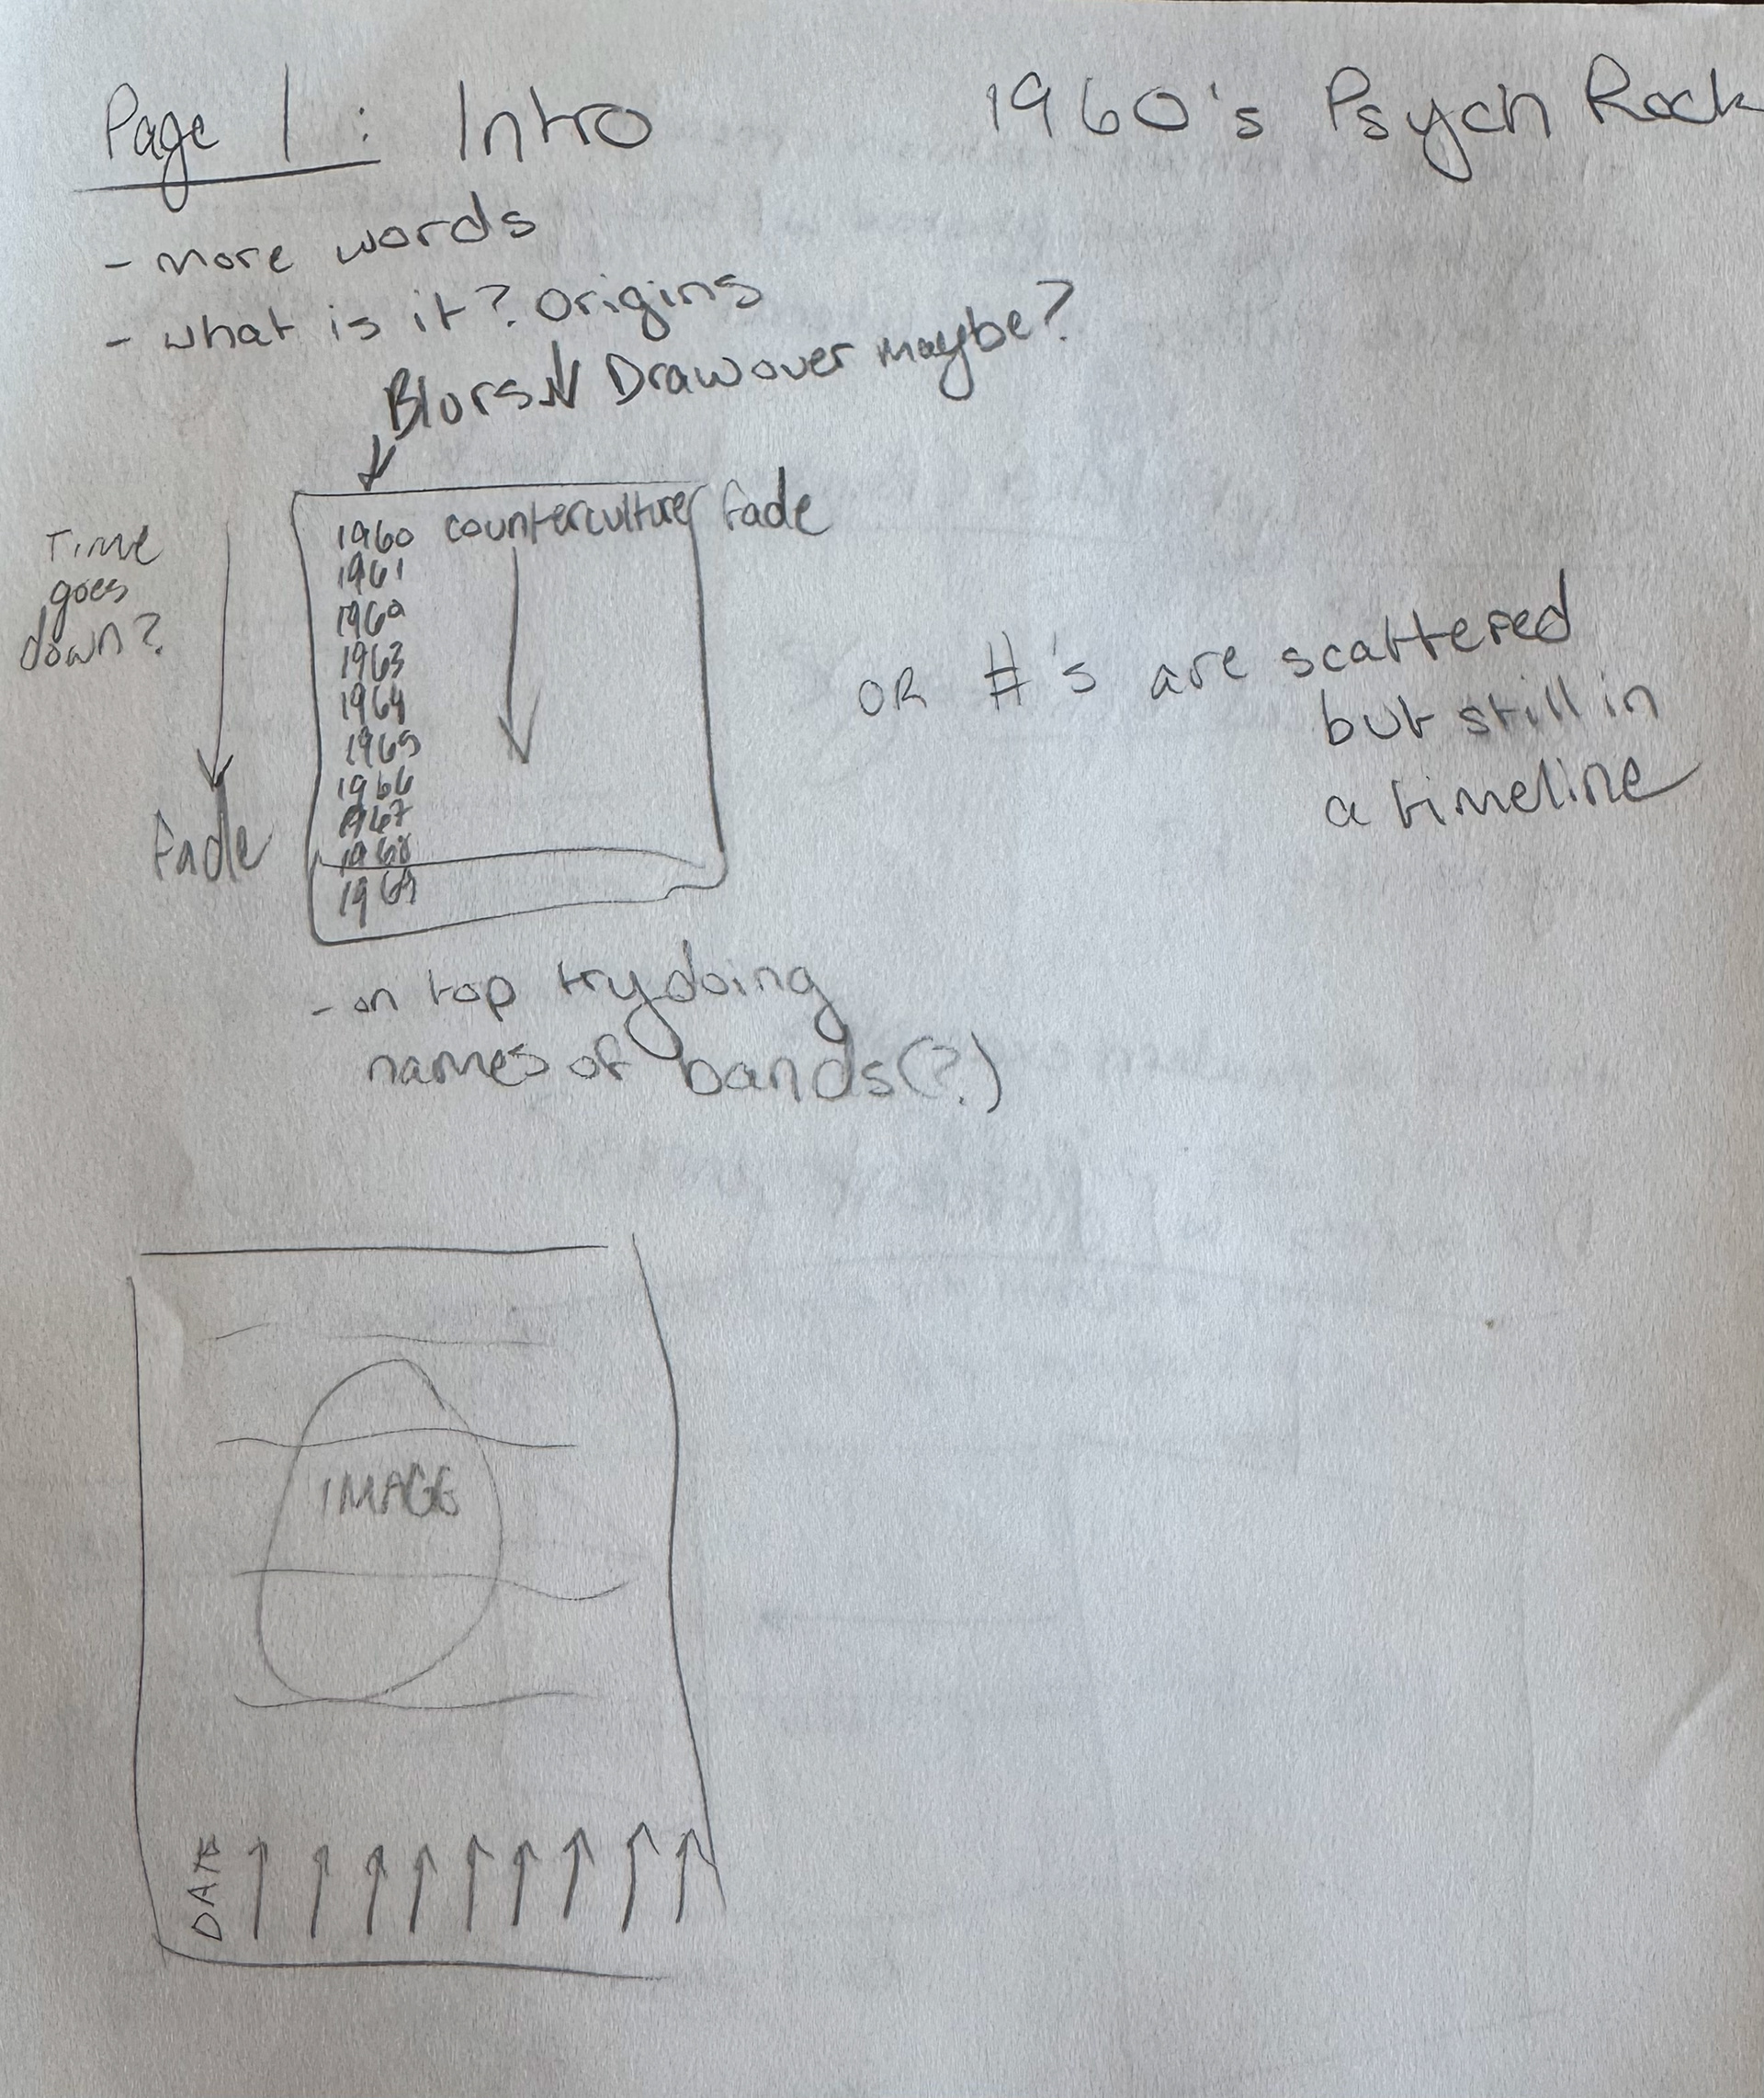 Page 1: Intro
1960's Psych Rock
- more words
- what is it? Origins
Blurs Draw over maybe?
Time
goes
down?
Fade
1960 counterculture Fade
1961
1962
1963
1964
1965
1966
1967
1968
1969
OR #'s are scattered
but still in
a timeline
- on top try doing
names of bands(?)
IMAGE
DATE